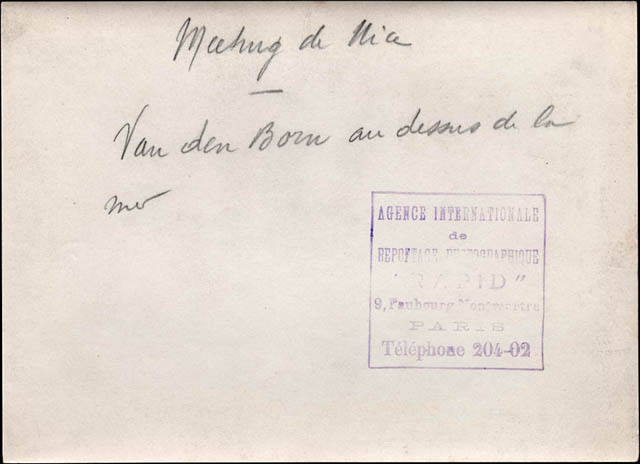 Meeting de Nice
Van den Born au dessus de la
mer
AGENCE INTERNATIONALE
de
REPORTAGE PHOTOGRAPHIQUE
"RAPID"
9, Faubourg Montmartre
PARIS
Téléphone 204-02